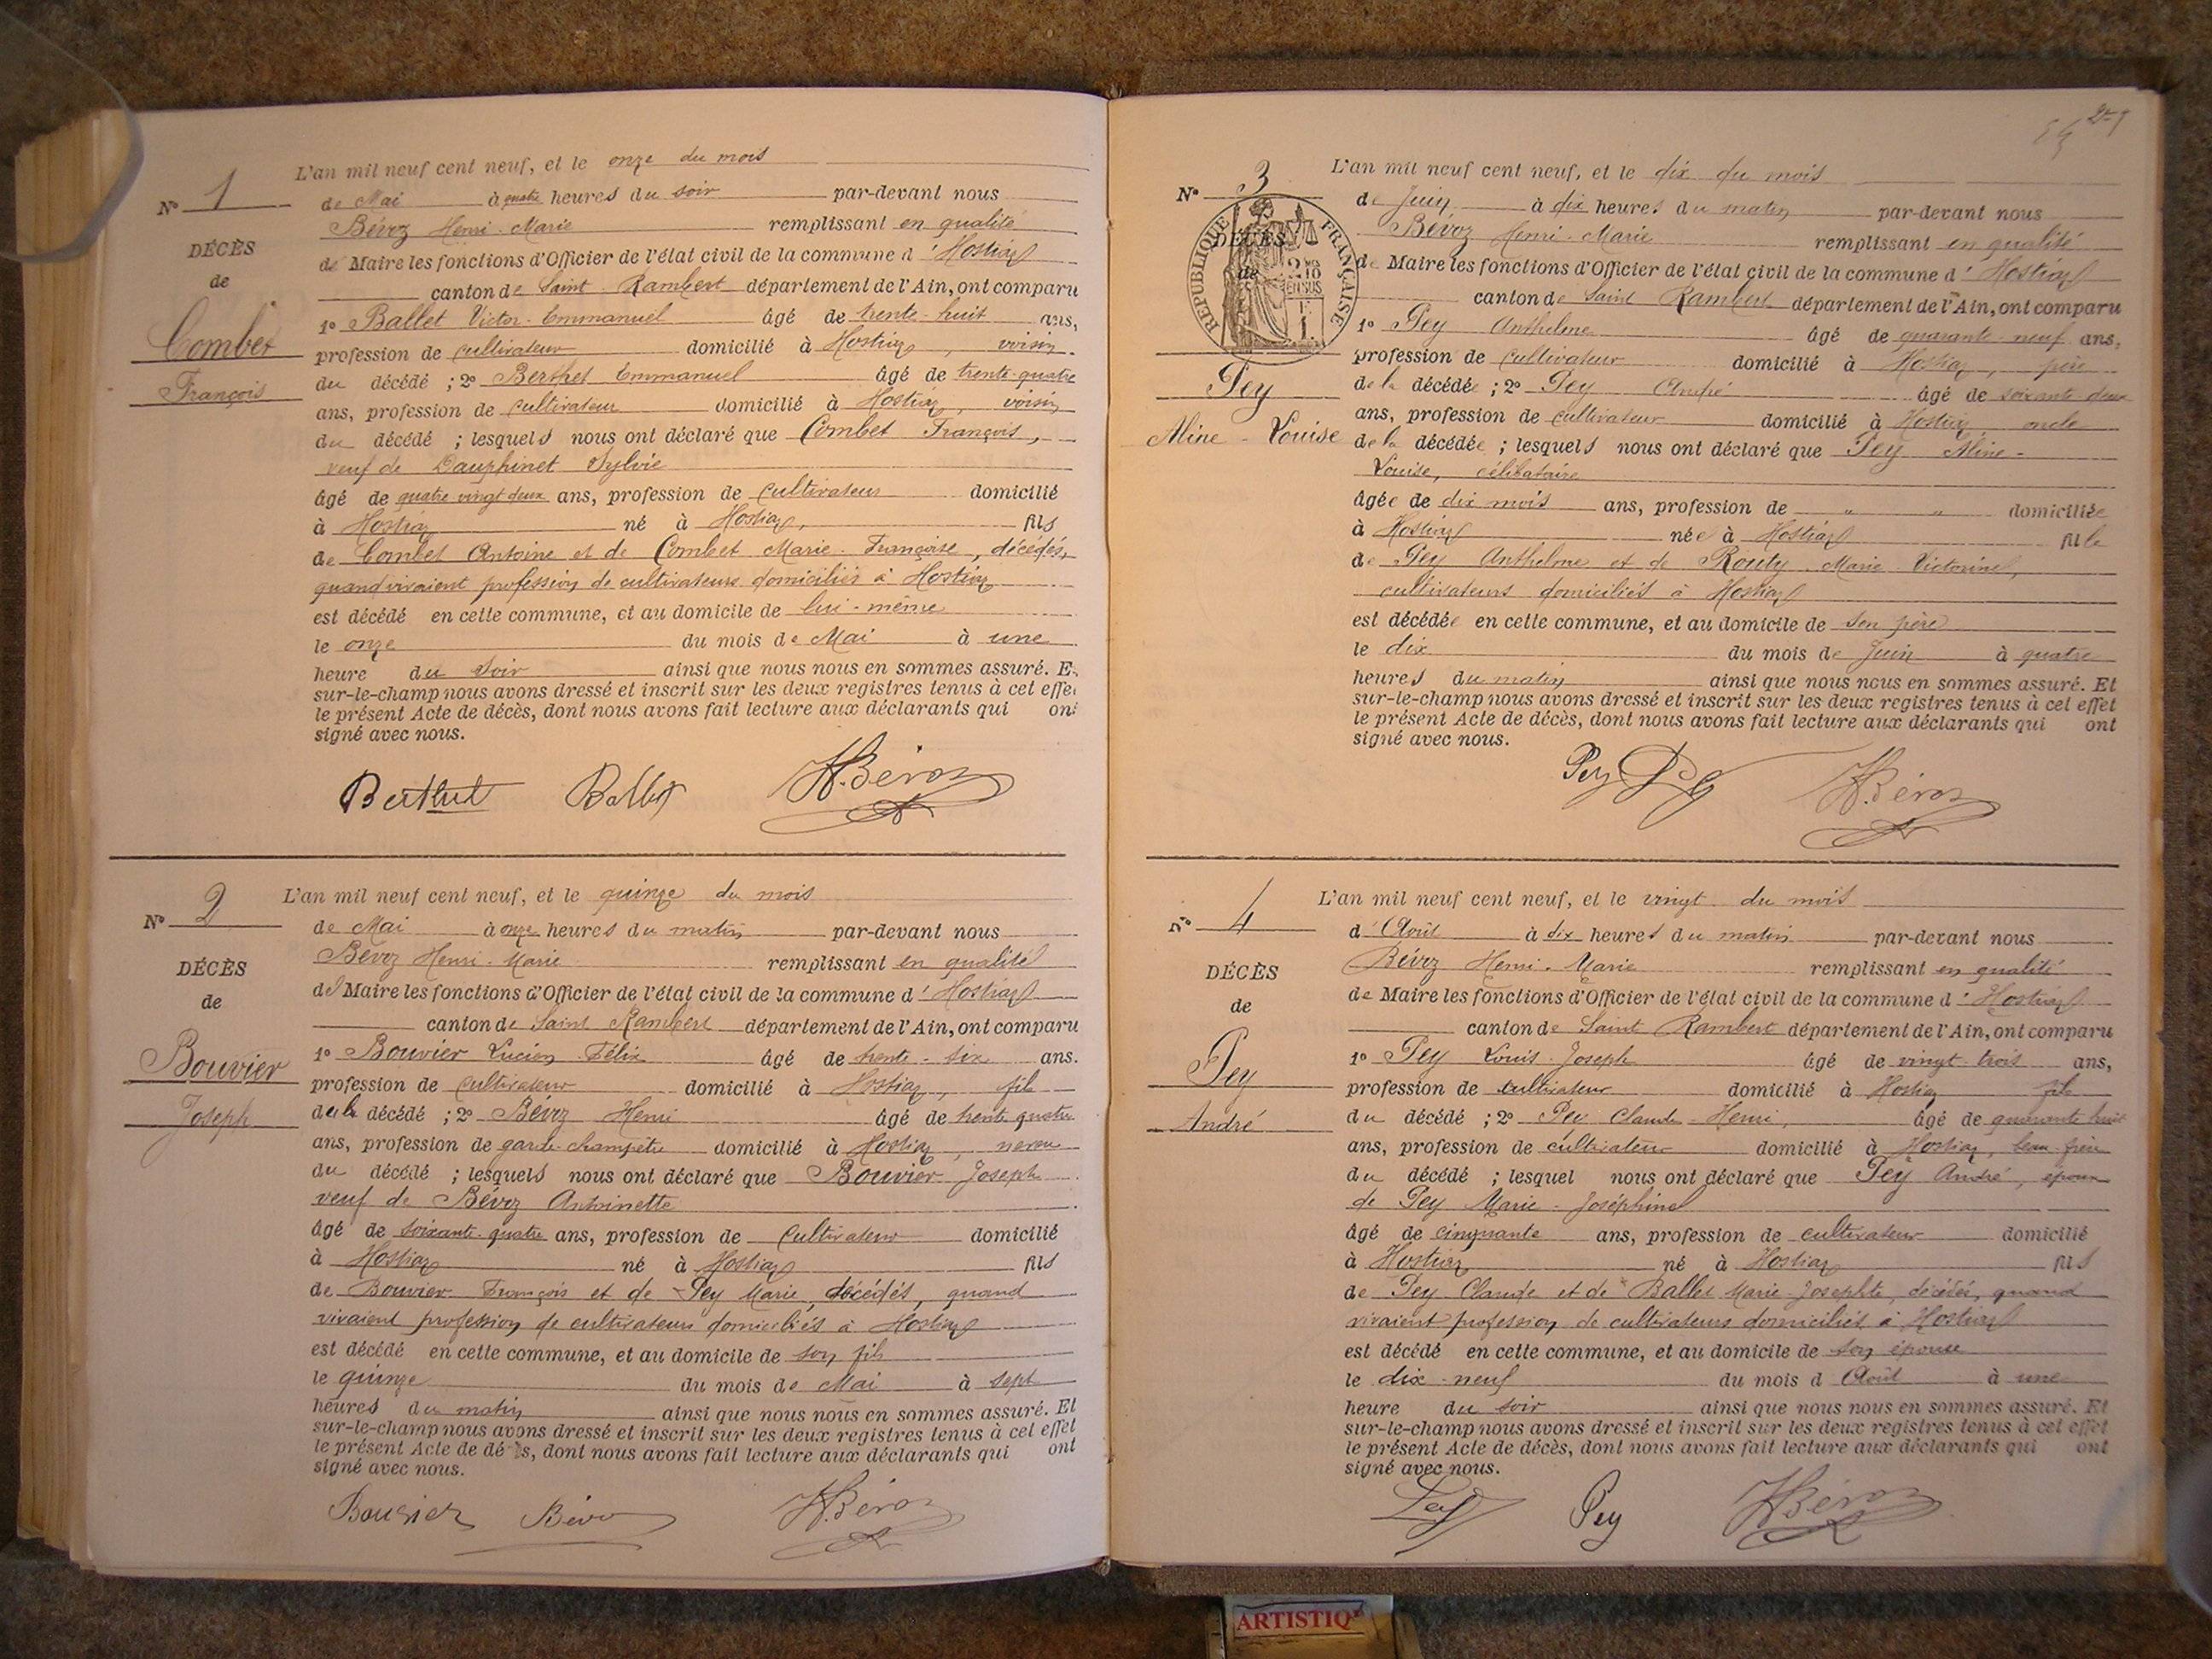 L'an mil neuf cent neuf, et le onze du mois
N° 1
de Mai à quatre heures du soir par-devant nous
Béroz Henri-Marie remplissant en qualité
DÉCÈS
de Maire les fonctions d'Officier de l'état civil de la commune d'Hostiaz
de
canton de Saint-Rambert département de l'Ain, ont comparu
Combet
1° Ballet Victor-Emmanuel âgé de trente-huit ans,
profession de cultivateur domicilié à Hostiaz, voisin
François
du décédé ; 2° Berthet Emmanuel âgé de trente-quatre
ans, profession de cultivateur domicilié à Hostiaz, voisin
du décédé ; lesquels nous ont déclaré que Combet François,
veuf de Dauphinet Sylvie
âgé de quatre vingt deux ans, profession de cultivateur domicilié
à Hostiaz né à Hostiaz, fils
de Combet Antoine et de Combet Marie-Françoise, décédés,
quand vivaient profession de cultivateurs domiciliés à Hostiaz
est décédé en cette commune, et au domicile de lui-même
le onze du mois de Mai à une
heure du soir ainsi que nous nous en sommes assuré. E
sur-le-champ nous avons dressé et inscrit sur les deux registres tenus à cet effe
le présent Acte de décès, dont nous avons fait lecture aux déclarants qui ont
signé avec nous.
Berthet Ballet H. Béroz
L'an mil neuf cent neuf, et le quinze du mois
N° 2
de Mai à onze heures du matin par-devant nous
Béroz Henri-Marie remplissant en qualité
DÉCÈS
de Maire les fonctions d'Officier de l'état civil de la commune d'Hostiaz
de
canton de Saint Rambert département de l'Ain, ont comparu
Bouvier
1° Bouvier Lucien-Félix âgé de trente-six ans.
profession de cultivateur domicilié à Hostiaz, fils
Joseph
du décédé ; 2° Béroz Henri âgé de trente quatre
ans, profession de garde-champêtre domicilié à Hostiaz, neveu
du décédé ; lesquels nous ont déclaré que Bouvier Joseph
veuf de Béroz Antoinette
âgé de soixante-quatre ans, profession de cultivateur domicilié
à Hostiaz né à Hostiaz fils
de Bouvier François et de Pey Marie, décédés, quand
vivaient profession de cultivateurs domiciliés à Hostiaz
est décédé en cette commune, et au domicile de son fils
le quinze du mois de Mai à sept
heures du matin ainsi que nous nous en sommes assuré. Et
sur-le-champ nous avons dressé et inscrit sur les deux registres tenus à cet effet
le présent Acte de décès, dont nous avons fait lecture aux déclarants qui ont
signé avec nous.
Bouvier Béroz H. Béroz
L'an mil neuf cent neuf, et le dix du mois
N° 3
de Juin à dix heures du matin par-devant nous
Béroz Henri-Marie remplissant en qualité
RÉPUBLIQUE FRANÇAISE
DÉCÈS
de Maire les fonctions d'Officier de l'état civil de la commune d'Hostiaz
de
canton de Saint Rambert département de l'Ain, ont comparu
1° Pey Anthelme âgé de quarante-neuf ans,
profession de cultivateur domicilié à Hostiaz, père
Pey
de la décédée ; 2° Pey André âgé de soixante deux
ans, profession de cultivateur domicilié à Hostiaz oncle
Aline-Louise
de la décédée ; lesquels nous ont déclaré que Pey Aline-
Louise, célibataire
âgée de dix mois ans, profession de " " domiciliée
à Hostiaz née à Hostiaz fille
de Pey Anthelme et de Routy Marie-Victorine,
cultivateurs domiciliés à Hostiaz
est décédée en cette commune, et au domicile de son père
le dix du mois de Juin à quatre
heures du matin ainsi que nous nous en sommes assuré. Et
sur-le-champ nous avons dressé et inscrit sur les deux registres tenus à cet effet
le présent Acte de décès, dont nous avons fait lecture aux déclarants qui ont
signé avec nous.
Pey H. Béroz
L'an mil neuf cent neuf, et le vingt du mois
N° 4
d'Août à dix heures du matin par-devant nous
Béroz Henri-Marie remplissant en qualité
DÉCÈS
de Maire les fonctions d'Officier de l'état civil de la commune d'Hostiaz
de
canton de Saint Rambert département de l'Ain, ont comparu
Pey
1° Pey Louis-Joseph âgé de vingt-trois ans,
profession de cultivateur domicilié à Hostiaz fils
André
du décédé ; 2° Pey Claude-Henri, âgé de quarante huit
ans, profession de cultivateur domicilié à Hostiaz, beau-frère
du décédé ; lesquel nous ont déclaré que Pey André, époux
de Pey Marie-Joséphine
âgé de cinquante ans, profession de cultivateur domicilié
à Hostiaz né à Hostiaz fils
de Pey Claude et de Ballet Marie-Josephte, décédés, quand
vivaient profession de cultivateurs domiciliés à Hostiaz
est décédé en cette commune, et au domicile de son épouse
le dix-neuf du mois d'Août à une
heure du soir ainsi que nous nous en sommes assuré. Et
sur-le-champ nous avons dressé et inscrit sur les deux registres tenus à cet effet
le présent Acte de décès, dont nous avons fait lecture aux déclarants qui ont
signé avec nous.
Pey Pey H. Béroz
ARTISTIQ